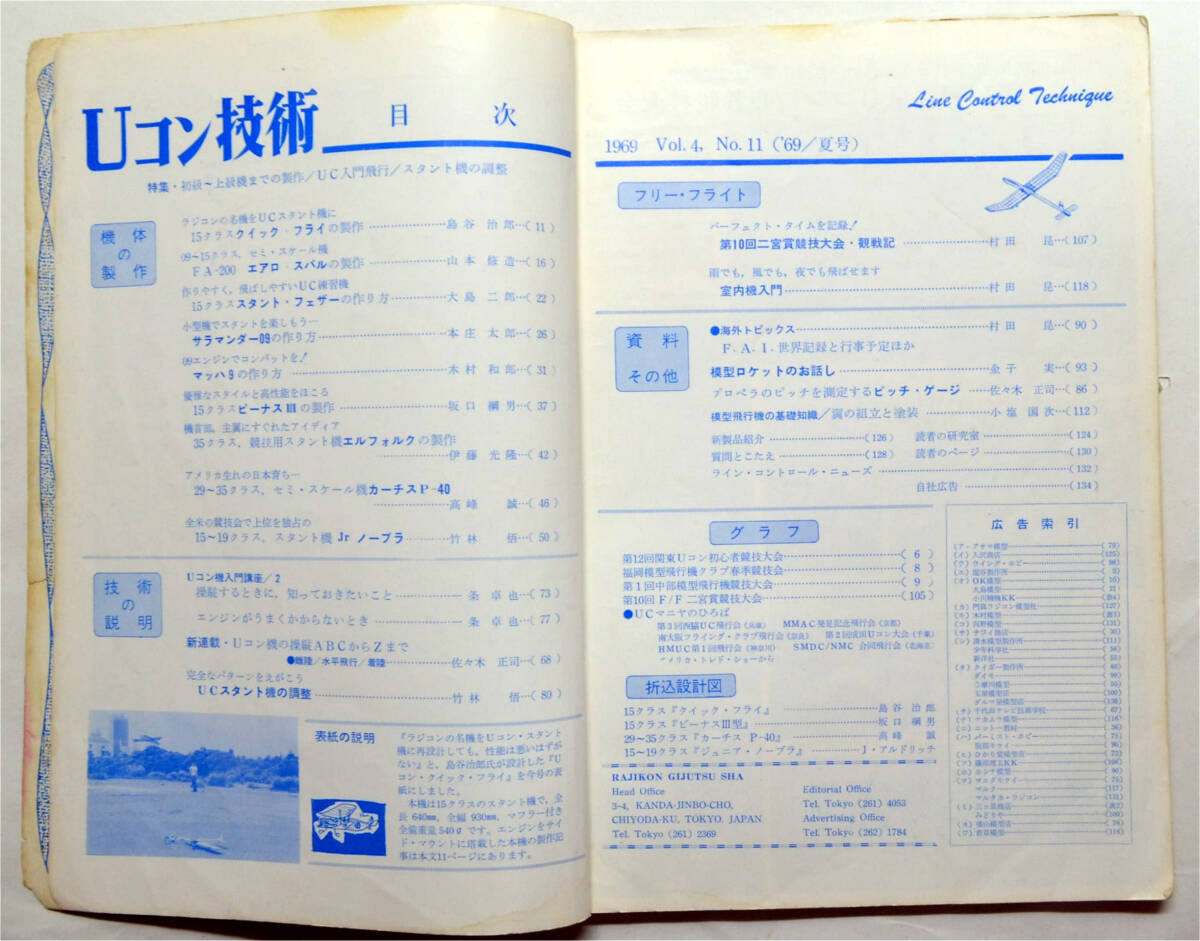 Uコン技術 目次
特集・初級〜上級機までの製作/UC入門飛行/スタント機の調整
機体の製作
ラジコンの名機をUCスタント機に
15クラスクイック・フライの製作 島谷治郎…(11)
09〜15クラス, セミ・スケール機
FA-200 エアロ・スバルの製作 山本修造…(16)
作りやすく, 飛ばしやすいUC練習機
15クラススタント・フェザーの作り方 大島二郎…(22)
小型機でスタントを楽しもう…
サラマンダー09の作り方 本庄太郎…(26)
09エンジンでコンバットを!
マッハ9の作り方 木村和郎…(31)
優雅なスタイルと高性能をほこる
15クラスビーナスIIIの製作 坂口綱男…(37)
機首部, 主翼にすぐれたアイディア
35クラス, 競技用スタント機エルフォルクの製作
伊藤光隆…(42)
アメリカ生れの日本育ち…
29〜35クラス, セミ・スケール機カーチスP-40
高峰誠…(46)
全米の競技会で上位を独占の
15〜19クラス, スタント機 Jr ノーブラ 竹林悟…(50)
技術の説明
Uコン機入門講座/2
操縦するときに, 知っておきたいこと 一条卓也…(73)
エンジンがうまくかからないとき 一条卓也…(77)
新連載・Uコン機の操縦ABCからZまで
●離陸/水平飛行/着陸 佐々木正司…(68)
完全なパターンをえがこう
UCスタント機の調整 竹林悟…(89)
表紙の説明
『ラジコンの名機をUコン・スタント
機に再設計しても, 性能は悪いはずが
ない』と, 島谷治郎氏が設計した『U
コン・クイック・フライ』を今号の表
紙にしました。
本機は15クラスのスタント機で, 全
長 640mm, 全幅 930mm, マフラー付き
全備重量540gです。エンジンをサイ
ド・マウントに搭載した本機の製作記
事は本文11ページにあります。
Line Control Technique
1969 Vol. 4, No. 11 ('69/夏号)
フリー・フライト
パーフェクト・タイムを記録!
第10回二宮賞競技大会・観戦記 村田昆…(107)
雨でも, 風でも, 夜でも飛ばせます
室内機入門 村田昆…(118)
資料その他
●海外トピックス 村田昆…(90)
F.A.I.世界記録と行事予定ほか
模型ロケットのお話し 金子実…(93)
プロペラのピッチを測定するピッチ・ゲージ 佐々木正司…(86)
模型飛行機の基礎知識/翼の組立と塗装 小塩国次…(112)
新製品紹介 (126) 読者の研究室 (124)
質問とこたえ (128) 読者のページ (130)
ライン・コントロール・ニューズ (132)
自社広告 (134)
グラフ
第12回関東Uコン初心者競技大会 (6)
福岡模型飛行機クラブ春季競技大会 (8)
第1回中部模型飛行機競技大会 (9)
第10回 F/F 二宮賞競技大会 (105)
●UCマニヤのひろば
第3回西脇UC飛行会(兵庫) MMAC発足記念飛行会(京都)
南大阪フライング・クラブ飛行会(奈良) 第2回成田Uコン大会(千葉)
HMUC第1回飛行会(神奈川) SMDC/NMC 合同飛行会(北海道)
アメリカ・トレド・ショーから
折込設計図
15クラス『クイック・フライ』 島谷治郎
15クラス『ビーナスIII型』 坂口綱男
29〜35クラス『カーチス P-40』 高峰誠
15〜19クラス『ジュニア・ノーブラ』 J・アルドリッチ
RAJIKON GIJUTSU SHA
Head Office
3-4, KANDA-JINBO-CHO,
CHIYODA-KU, TOKYO. JAPAN
Tel. Tokyo (261) 2369
Editorial Office
Tel. Tokyo (261) 4053
Advertising Office
Tel. Tokyo (262) 1784
広告索引